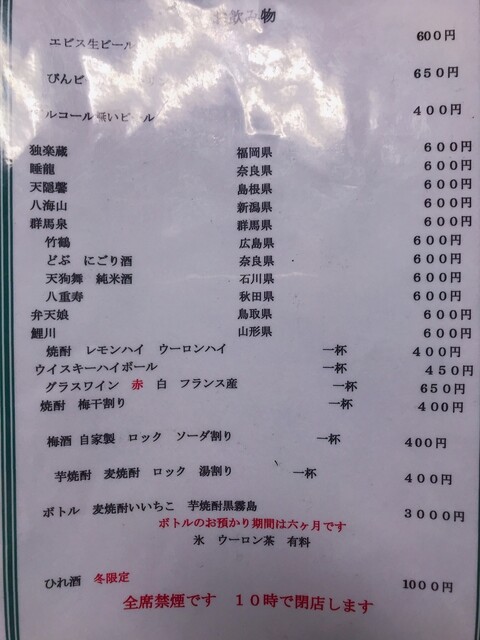 お飲み物
エビス生ビール 600円
びんビ 650円
ルコール無いビール 400円
独楽蔵 福岡県 600円
睡龍 奈良県 600円
天隠馨 島根県 600円
八海山 新潟県 600円
群馬泉 群馬県 600円
竹鶴 広島県 600円
どぶ にごり酒 奈良県 600円
天狗舞 純米酒 石川県 600円
八重寿 秋田県 600円
弁天娘 鳥取県 600円
鯉川 山形県 600円
焼酎 レモンハイ ウーロンハイ 一杯 400円
ウイスキーハイボール 一杯 450円
グラスワイン 赤 白 フランス産 一杯 650円
焼酎 梅干割り 一杯 400円
梅酒 自家製 ロック ソーダ割り 一杯 400円
芋焼酎 麦焼酎 ロック 湯割り 一杯 400円
ボトル 麦焼酎いいちこ 芋焼酎黒霧島 3000円
ボトルのお預かり期間は六ヶ月です
氷 ウーロン茶 有料
ひれ酒 冬限定 1000円
全席禁煙です 10時で閉店します